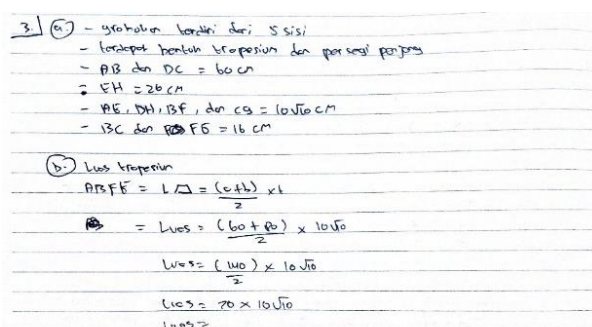 3. a. - grobokan terdiri dari 5 sisi
- terdapat bentuk trapesium dan persegi panjang
- AB dan DC = 60 cm
- EH = 26 cm
- AE, DH, BF, dan CG = 10√10 cm
- BC dan FG = 16 cm
b. Luas trapesium
ABFE = L = (a+b)/2 × t
= Luas = (60 + 80)/2 × 10√10
Luas = (140)/2 × 10√10
Luas = 70 × 10√10
Luas =